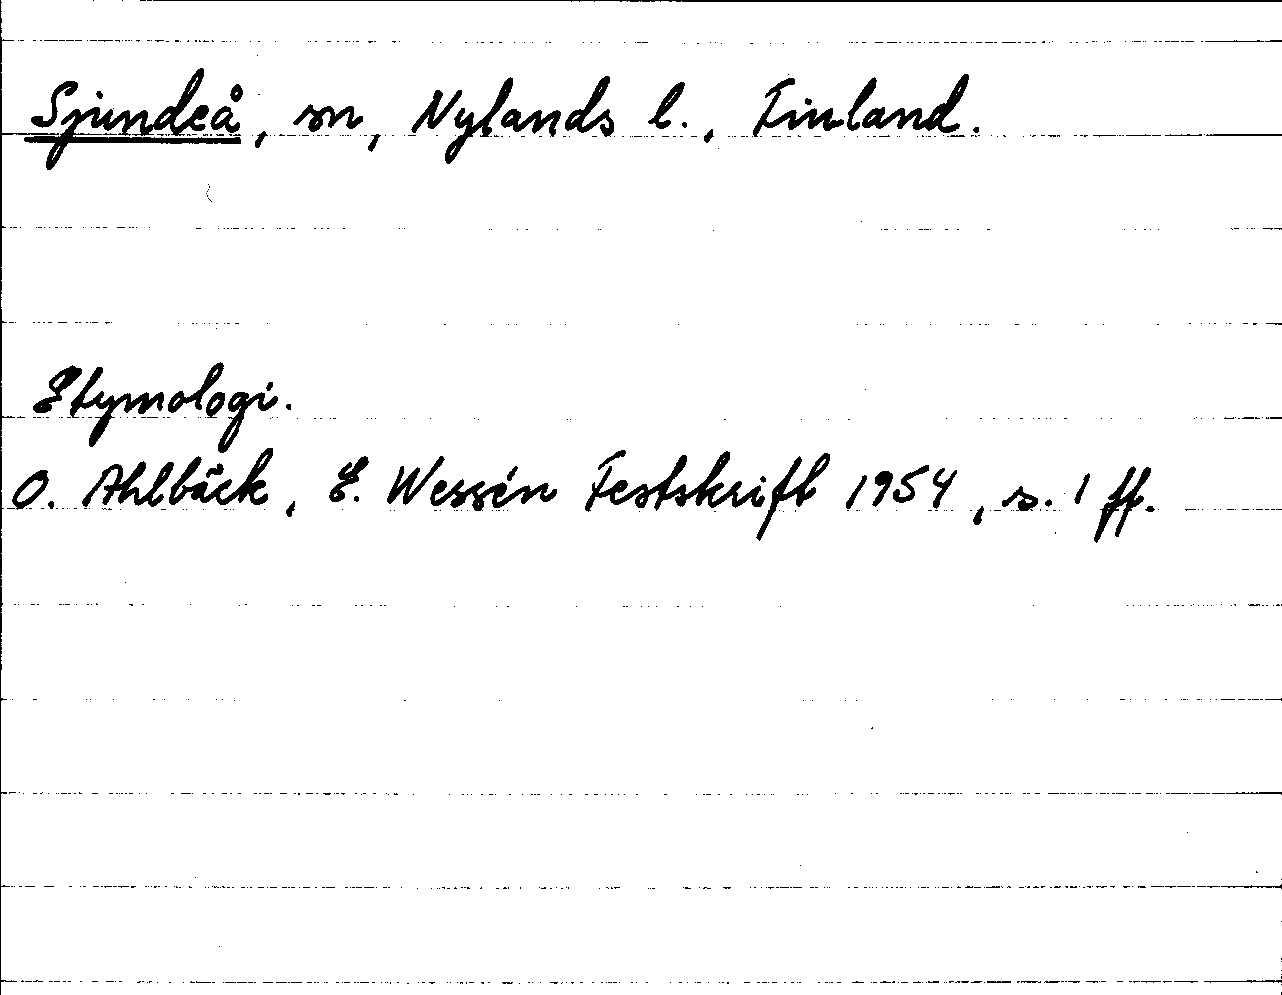 Sjundeå, sn, Nylands l., Finland.
Etymologi.
O. Ahlbäck, E. Wessén Festskrift 1954, s. 1 ff.